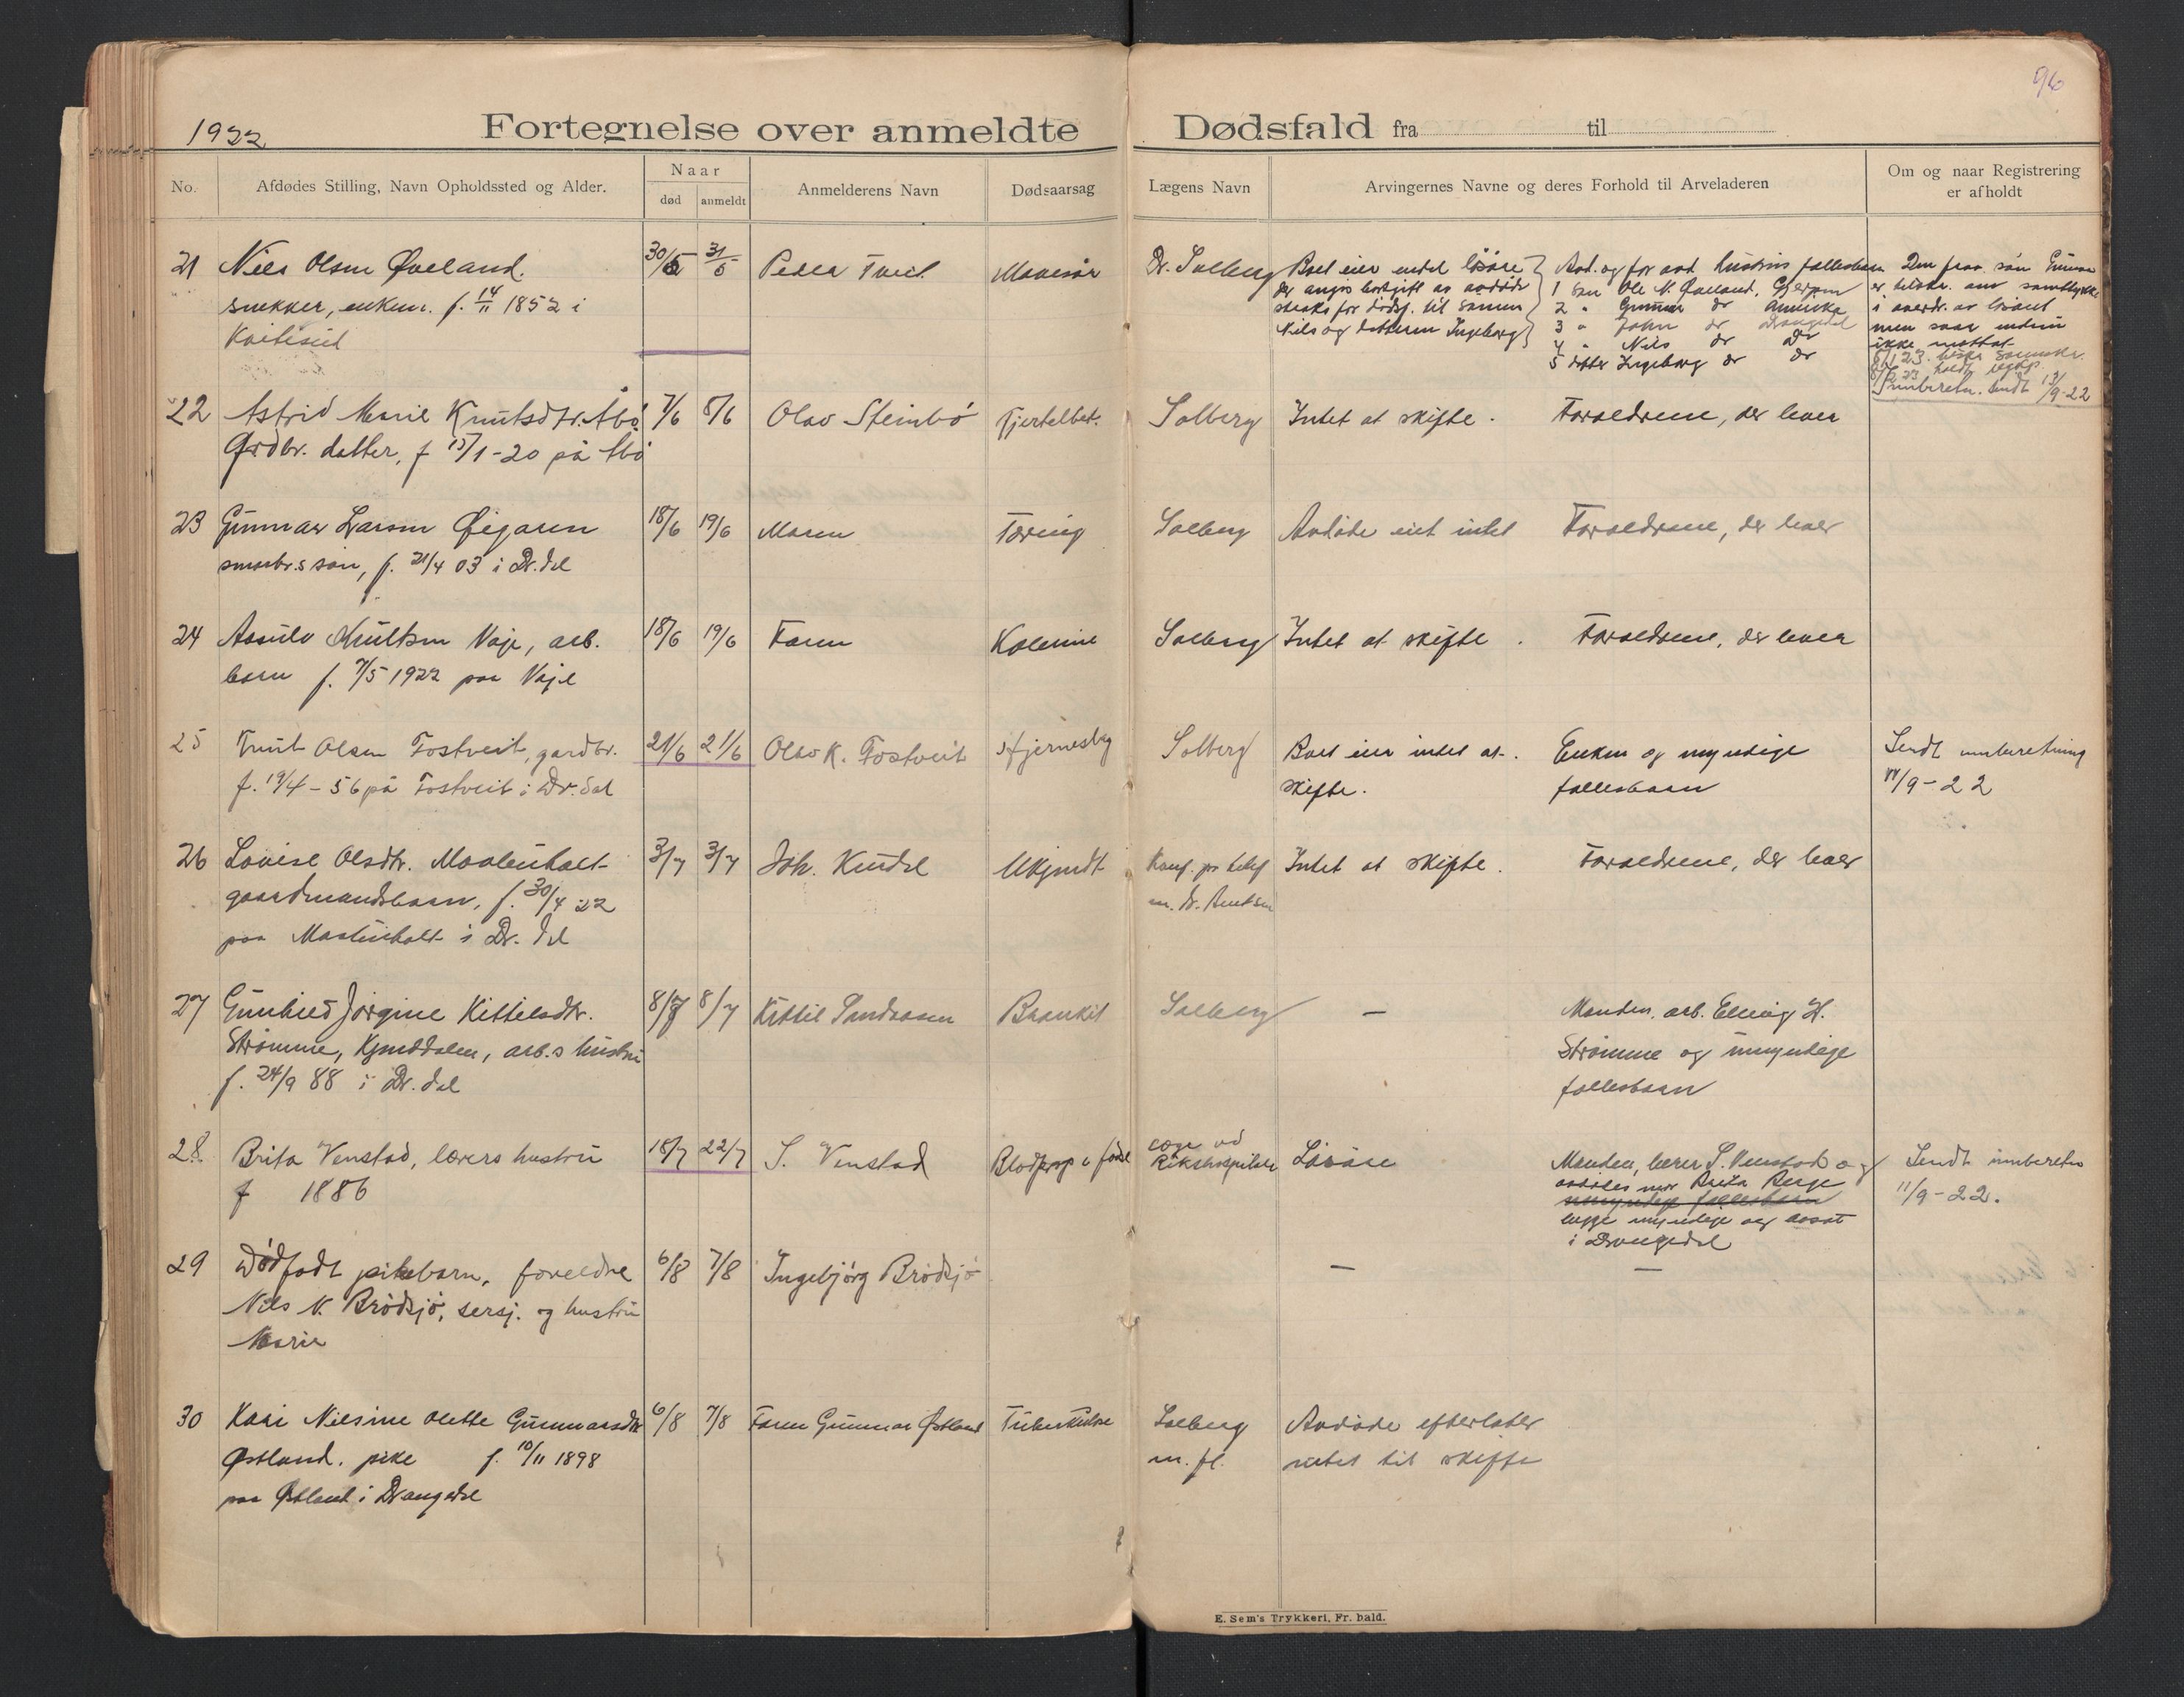 96
1922
Fortegnelse over anmeldte Dødsfald fra til
No.
Afdødes Stilling, Navn Opholdssted og Alder.
Naar
død
anmeldt
Anmelderens Navn
Dødsaarsag
Lægens Navn
Arvingernes Navne og deres Forhold til Arveladeren
Om og naar Registrering
er afholdt
21 Niels Olsen Øveland. 30/5 31/5 Peder Tveit Mavesår Dr. Solberg
snekker, enkem. f. 14/11 1852 i
Boet eier endel løsøre
der angis bortgift av avdøde
straks før dødsf. til sønnen
Nils og datteren Ingeborg
Avd. og før avd. hustrus fællesbarn
1 søn Ole N. Øveland, Gjerpen
2 " Gunnar do Amerika
3 " John do Drangedal
4 " Nils do do
5 datter Ingeborg do do
ikke mottat
Innberetn. sendt 13/9-22
22 Astrid Marie Knutsdtr. Åbø 7/6 8/6 Olav Steinbö Hjertelbet. Solberg Intet at skifte. Foreldrene, der lever
Grdbr. datter, f 15/1-20 på Åbø
23 Gunnar Larsen Øigaren 18/6 19/6 Moren Tæring Solberg Avdøde eiet intet Forældrene, der lever
smaabr.s søn, f. 21/4 03 i Dr.dal
24 Assulv Knutsen Vaje, arb. 18/6 19/6 Faren Kolerine Solberg Intet at skifte. Forældrene, der lever
barn f. 7/5 1922 paa Vaje
25 Knut Olsen Tostveit, gardbr. 21/6 21/6 Olav K. Tostveit Hjernesleg Solberg Boet eier intet at Enken og myndige Sendt innberetning
f. 19/4-56 på Tostveit i Dr.dal skifte. fællesbarn 11/9-22
26 Lovise Olsdtr. Moolenholt 3/7 3/7 Joh. Kindel Ukjendt Konf. pr telef Intet at skifte. Forældrene, der lever
gaardmandsbarn, f. 30/4 22 m. Dr. Bentsen
paa i Dr.dal
27 Gunhild Jørgine Kittilsdtr. 8/7 8/7 Kittil Sandaasen Brankit Solberg — Manden, arb. Elling H.
Strømme, Kjendalen, arb.s hustru Strømme og umyndige
f. 24/9 88 i Dr.dal fællesbarn
28 Brita Venstad, lærers hustru 18/7 22/7 S. Venstad Blodprop e. føds læge ved Løsøre
f 1886 Rikshospitalet
Manden, lærer S. Venstad og
avdødes mor Brita Berge
umyndige fællesbarn
begge myndige og bosat
i Drangedal
Sendt innberetn
11/9-22.
29 Dødfødt pikebarn, foreldre 6/8 7/8 Ingebjörg Brödsjö — —
Nils N. Brödsjö, sersj. og hustru
Marie
30 Kari Nilsine Olette Gunnarsdtr 6/8 7/8 Faren Gunnar Østland Tuberkulose Solberg Avdøde efterlater
Østland, pike f. 10/11 1898 m. fl. intet til skifte
paa Østland i Drangedal
E. Sem's Trykkeri, Fr. hald.